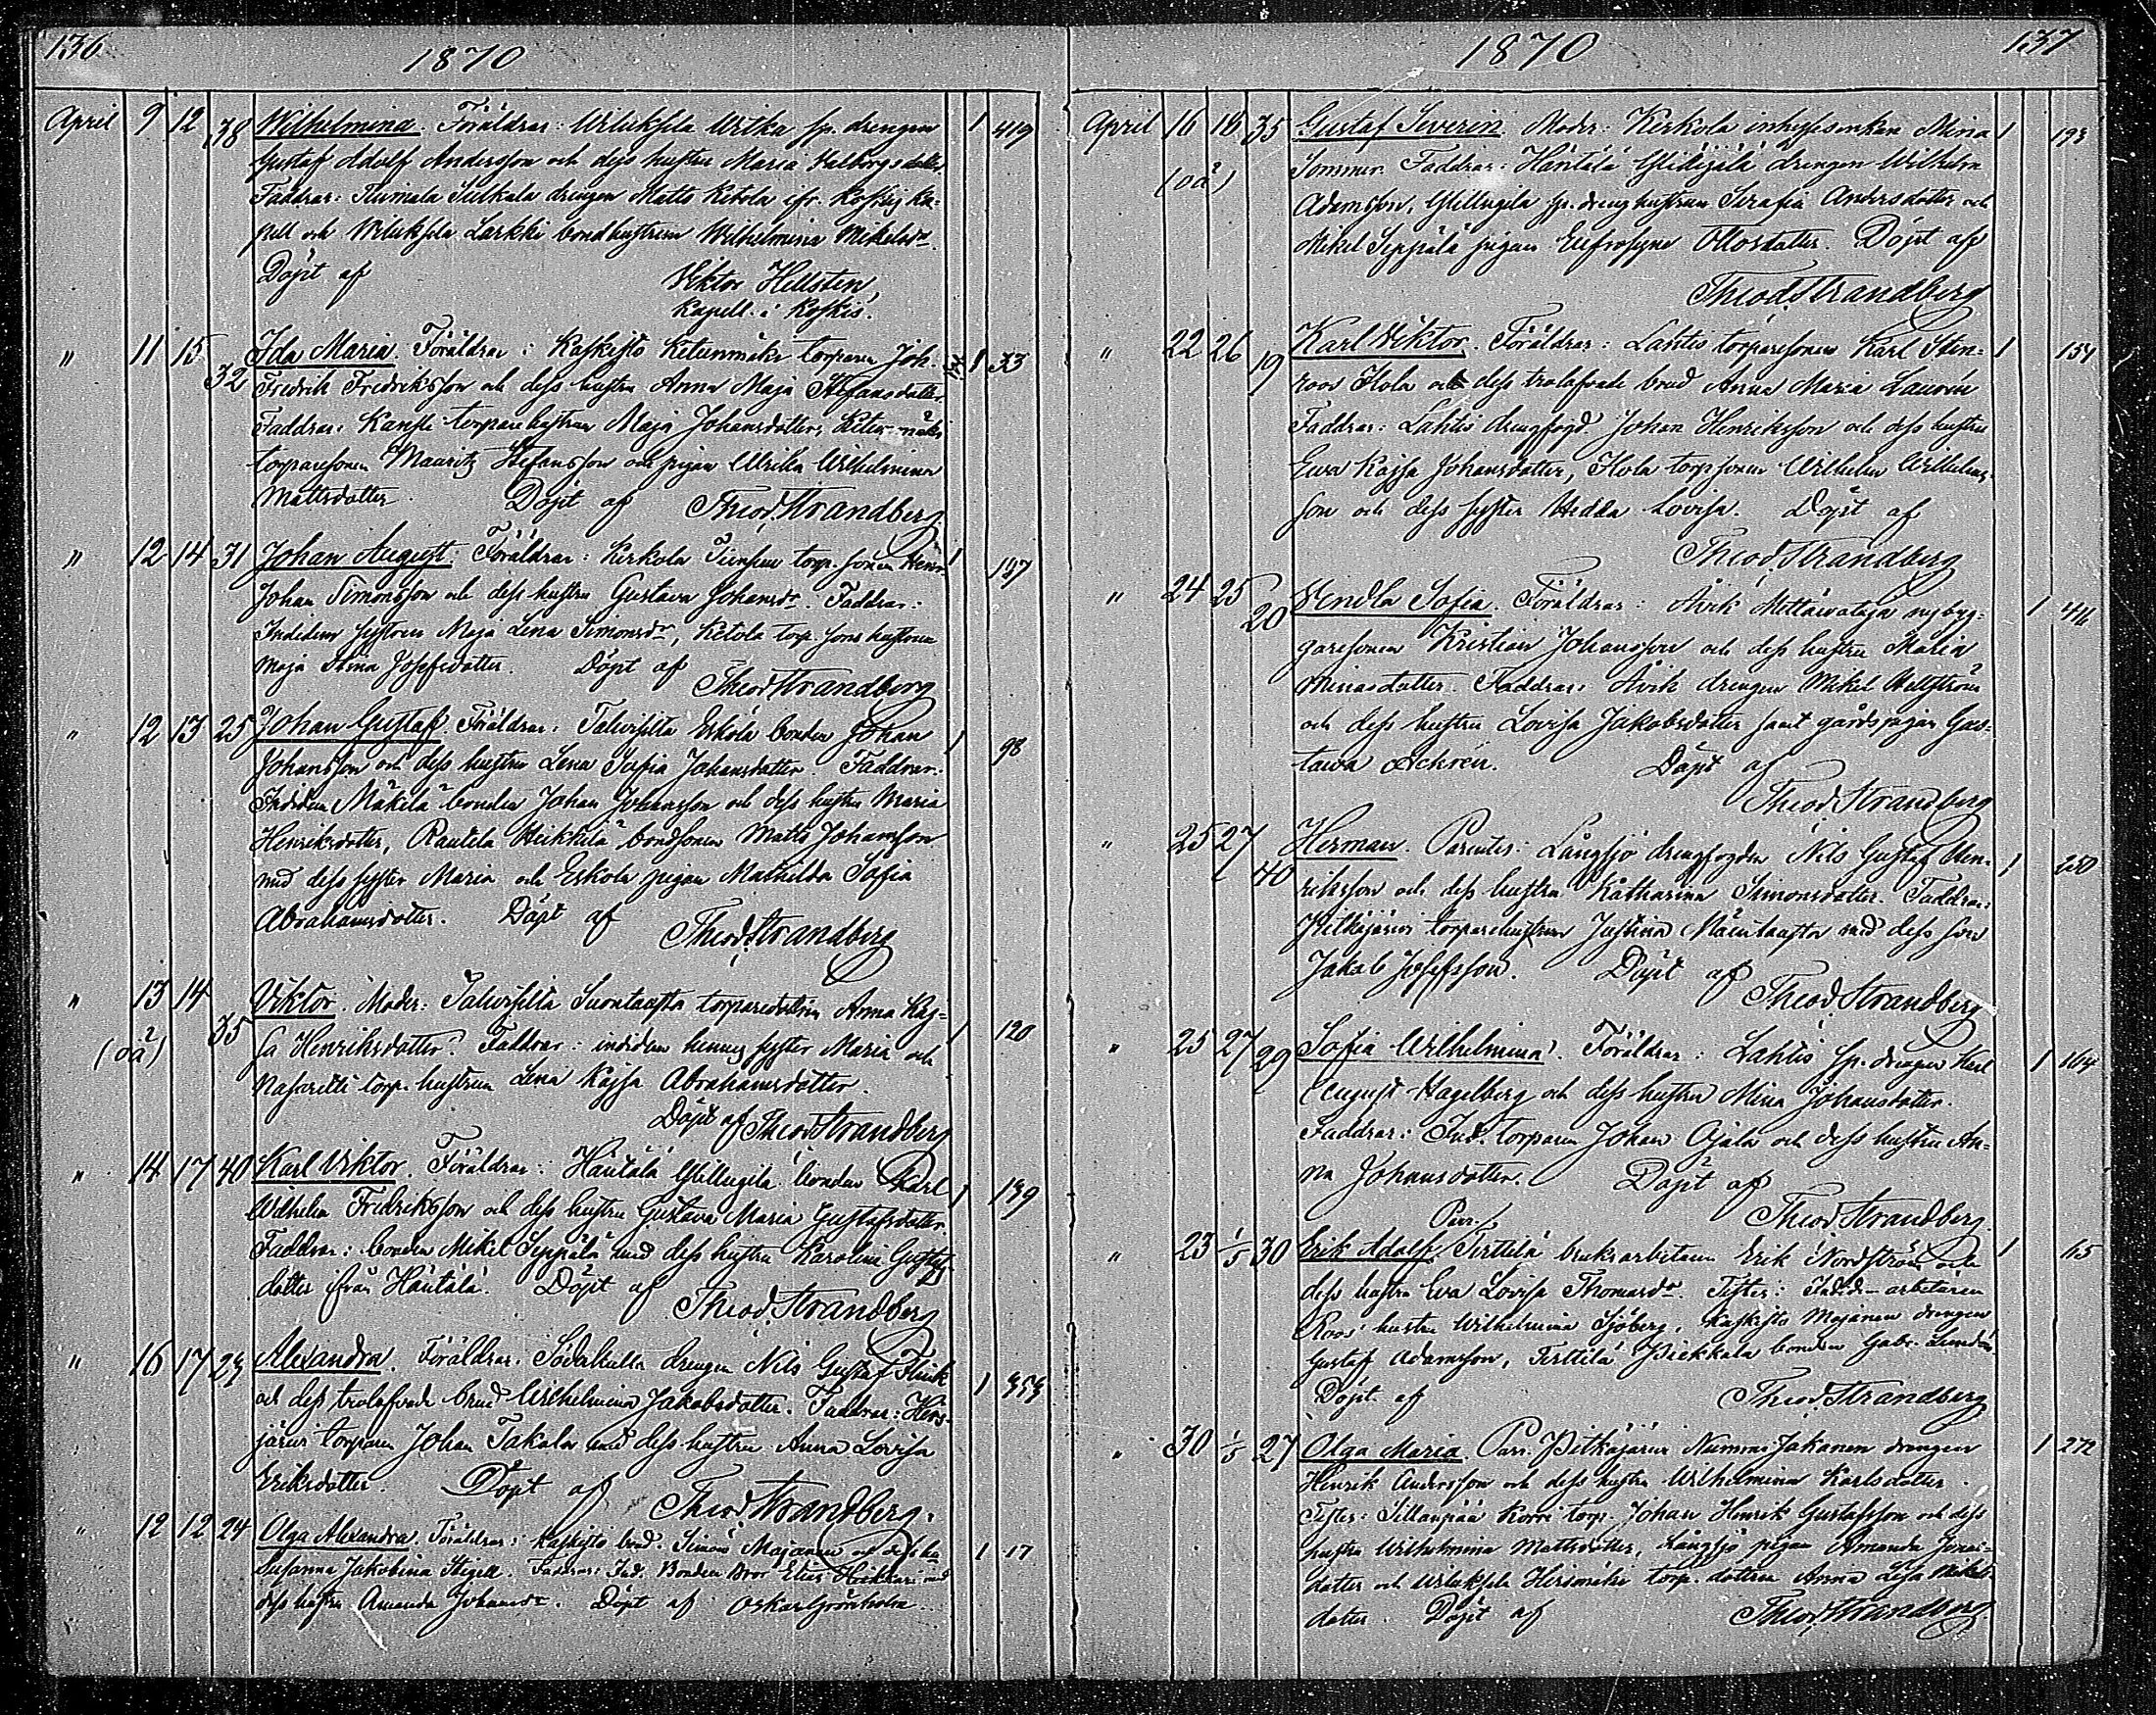 136
1870
April 9 12 38 Wilhelmina. Föräldrar: Wiluksela Uotka sp. drengen 1 419
Gustaf Adolf Andersson och dess hustru Maria Walborgsdotter.
Faddrar: drengen Matts Ketola ifr. Koskis ka-
pell och Wiluksela Larkki bondhustrun Wilhelmina Mikelsdr.
Döpt af Viktor Hellsten,
Kapell. i Koskis.
" 11 15 32 Ida Maria. Föräldrar: Kaskisto Ketunmäki torparen Joh. 1 33
Fredrik Fredriksson och dess hustru Anna Maja Stefansdotter.
Faddrar: torparehustrun Maja Johansdotter, Ketunmäki
torparesonen Mauritz Stefansson och pigan Ulrika Wilhelmina
Mattsdotter. Döpt af Theod. Strandberg.
" 12 14 31 Johan August. Föräldrar: Kerkola torp. sonen Henr. 1 197
Johan Simonsson och dess hustru Gustava Johansdr. Faddrar:
Indidem systern Maja Lena Simonsdr, Ketola torp. sons hustrun
Maja Stina Josefsdotter. Döpt af Theod. Strandberg
" 12 13 25 Johan Gustaf. Föräldrar: Talvisilta Eskola bonden Johan 1 98
Johansson och dess hustru Lena Sofia Johansdotter. Faddrar:
Indidem Mäkelä bonden Johan Johansson och dess hustru Maria
Henriksdotter, Rautela Heikkilä bondsonen Matts Johansson
med dess syster Maria och Eskola pigan Mathilda Sofia
Abrahamsdotter. Döpt af Theod. Strandberg
" 13 14 35 Viktor. Moder: Talvisilta Suontausta torparedottren Anna Kaj- 1 120
(oä) sa Henriksdotter. Faddrar: indidem hennes syster Maria och
Nasaretti torp. hustrun Lena Kajsa Abrahamsdotter.
Döpt af Theod. Strandberg
" 14 17 40 Karl Viktor. Föräldrar: Häntälä Yllilugila bonden Karl 1 189
Wilhelm Fredriksson och dess hustru Gustava Maria Gustafsdotter.
Faddrar: bonden Mikel Seppälä med dess hustru Karolina Gustafs-
dotter ifrån Häntälä. Döpt af Theod. Strandberg
" 16 17 23 Alexandra. Föräldrar: Söderkulla drengen Nils Gustaf Flink 1 353
och dess trolofvade brud Wilhelmina Jakobsdotter. Faddrar: Hirs-
järvi torparen Johan Takala med dess hustru Anna Lovisa
Eriksdotter. Döpt af Theod. Strandberg.
" 12 12 24 Olga Alexandra. Föräldrar: Kaskisto bond. Simon Majanen och dess hu 1 17
Susanna Jakobina Stigell. Faddrar: Ind. Bonden Bror Elias Heikkari med
dess hustru Amanda Johansdr. Döpt af Oskar Grönholm.
137
1870
April 16 18 35 Gustaf Severin. Moder: Kerkola inhysesenkan Mina 1 193
(oä) Sommer. Faddrar: Häntälä drengen Wilhelm
Adamsson, Yllilugila sp. drenghustrun Serafia Andersdotter och
Mikel Seppälä pigan Eufrosyne Ottosdotter. Döpt af
Theod. Strandberg
" 22 26 19 Karl Viktor. Föräldrar: Lahtis torparesonen Karl Sten- 1 154
roos Hola och dess trolofvade brud Anna Maria Laurén
Faddrar: Lahtis drengfogd Johan Henriksson och dess hustru
Ewa Kajsa Johansdotter, Hola torpsonen Wilhelm Wilhelms-
son och dess syster Hedda Lovisa. Döpt af
Theod. Strandberg
" 24 25 20 Vendla Sofia. Föräldrar: Åvik nybyg- 1 416
garesonen Kristian Johansson och dess hustru Maria
Miinasdotter. Faddrar: Åvik drengen Mikel Hellström
och dess hustru Lovisa Jakobsdotter samt gårdspigan Gus-
tawa Ackrén. Döpt af
Theod. Strandberg
" 25 27 40 Herman. Parentes: Långsjö drengfogden Nils Gustaf Hen- 1 250
riksson och dess hustru Katharina Simonsdotter. Faddrar:
Pitkäjärvi torparehustrun Justina Mäentausta med dess son
Jakob Josefsson. Döpt af
Theod. Strandberg
" 25 27 29 Sofia Wilhelmina. Föräldrar: Lahtis sp. drengen Karl 1 164
August Hagelberg och dess hustru Mina Johansdotter.
Faddrar: Ind. torparen Johan Ojala och dess hustru An-
na Johansdotter. Döpt af
Theod. Strandberg.
" 23 1/5 30 Erik Adolf. Parr. Terttilä bruksarbetaren Erik Nordström och 1 65
dess hustru Eva Lovisa Thomasdr. Testes: Indid. arbetaren
Roos' hustru Wilhelmina Sjöberg, Kaskisto Majanen drengen
Gustaf Adamsson, Terttilä Pirkkala bonden Gabr. Lindén
Döpt af Theod. Strandberg
" 30 1/5 27 Olga Maria. Parr. Pitkäjärvi Nummi Jakanen drengen 1 272
Henrik Andersson och dess hustru Wilhelmina Karlsdotter.
Testes: Sillanpää Korri torp. Johan Henrik Gustafsson och dess
hustru Wilhelmina Mattsdotter, Långsjö pigan Amanda Jonas-
dotter och Wiluksela Hirsimäki torp. dottren Anna Lisa Mikels-
dotter. Döpt af Theod. Strandberg